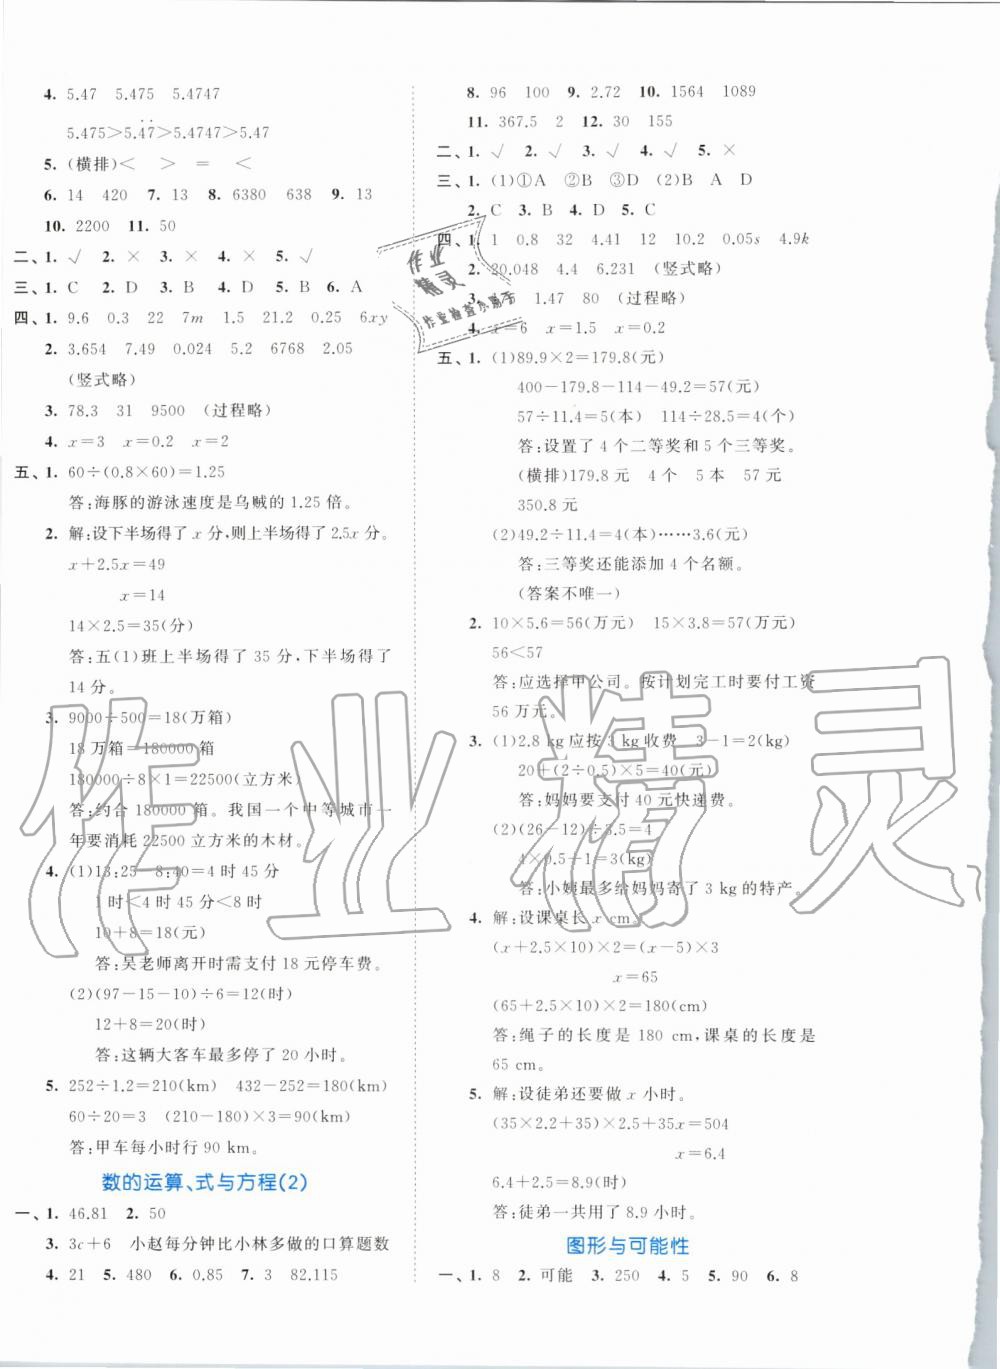 4. 5.47 5.475 5.4747
5.475＞5.4̇7̇＞5.4747＞5.47
5. (横排)＜ ＞ ＝ ＜
6. 14 420 7. 13 8. 6380 638 9. 13
10. 2200 11. 50
二、1. √ 2. × 3. × 4. × 5. √
三、1. C 2. D 3. B 4. D 5. B 6. A
四、1. 9.6 0.3 22 7m 1.5 21.2 0.25 6xy
2. 3.654 7.49 0.024 5.2 6768 2.05
(竖式略)
3. 78.3 31 9500 (过程略)
4. x=3 x=0.2 x=2
五、1. 60÷(0.8×60)=1.25
答:海豚的游泳速度是乌贼的 1.25 倍。
2. 解:设下半场得了 x 分,则上半场得了 2.5x 分。
x+2.5x=49
x=14
14×2.5=35(分)
答:五(1)班上半场得了 35 分,下半场得了
14 分。
3. 9000÷500=18(万箱)
18 万箱=180000 箱
180000÷8×1=22500(立方米)
答:约合 180000 箱。我国一个中等城市一
年要消耗 22500 立方米的木材。
4. (1)13:25-8:40=4 时 45 分
1 时＜4 时 45 分＜8 时
10+8=18(元)
答:吴老师离开时需支付 18 元停车费。
(2)(97-15-10)÷6=12(时)
12+8=20(时)
答:这辆大客车最多停了 20 小时。
5. 252÷1.2=210(km) 432-252=180(km)
60÷20=3 (210-180)×3=90(km)
答:甲车每小时行 90 km。
数的运算、式与方程(2)
一、1. 46.81 2. 50
3. 3c+6 小赵每分钟比小林多做的口算题数
4. 21 5. 480 6. 0.85 7. 3 82.115
8. 96 100 9. 2.72 10. 1564 1089
11. 367.5 2 12. 30 155
二、1. √ 2. √ 3. √ 4. √ 5. ×
三、1. (1)①A ②B ③D (2)B A D
2. C 3. B 4. D 5. C
四、1. 1 0.8 32 4.41 12 10.2 0.05s 4.9k
2. 20.048 4.4 6.231 (竖式略)
3. 1.47 80 (过程略)
4. x=6 x=1.5 x=0.2
五、1. (1)89.9×2=179.8(元)
400-179.8-114-49.2=57(元)
57÷11.4=5(本) 114÷28.5=4(个)
答:设置了 4 个二等奖和 5 个三等奖。
(横排)179.8 元 4 个 5 本 57 元
350.8 元
(2)49.2÷11.4=4(本)……3.6(元)
答:三等奖还能添加 4 个名额。
(答案不唯一)
2. 10×5.6=56(万元) 15×3.8=57(万元)
56＜57
答:应选择甲公司。按计划完工时要付工资
56 万元。
3. (1)2.8 kg应按 3 kg收费 3-1=2(kg)
20+(2÷0.5)×5=40(元)
答:妈妈要支付 40 元快递费。
(2)(26-12)÷3.5=4
4×0.5+1=3(kg)
答:小姨最多给妈妈寄了 3 kg的特产。
4. 解:设课桌长 x cm。
(x+2.5×10)×2=(x-5)×3
x=65
(65+2.5×10)×2=180(cm)
答:绳子的长度是 180 cm,课桌的长度是
65 cm。
5. 解:设徒弟还要做 x 小时。
(35×2.2+35)×2.5+35x=504
x=6.4
6.4+2.5=8.9(时)
答:徒弟一共用了 8.9 小时。
图形与可能性
一、1. 8 2. 可能 3. 250 4. 5 5. 90 6. 8
作业精灵
作业
精灵
作业检查小助手